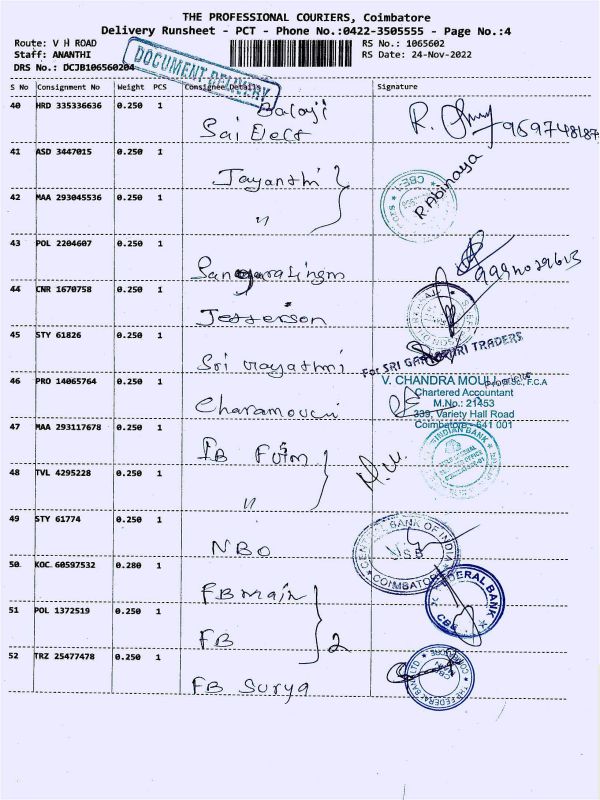 THE PROFESSIONAL COURIERS, Coimbatore
Delivery Runsheet - PCT - Phone No.:0422-3505555 - Page No.:4
Route: V H ROAD
RS No.: 1065602
Staff: ANANTHI
RS Date: 24-Nov-2022
DRS No.: DCJB106560204
DOCUMENT DELIVERY
S No Consignment No Weight PCS Consignee Details Signature
40 HRD 335336636 0.250 1 Balaji
Sai Elect R.
41 ASD 3447015 0.250 1
Jayanthi R. Abinaya
CBE-1
42 MAA 293045536 0.250 1
"
43 POL 2204607 0.250 1
44 CNR 1670758 0.250 1
Jefferson
45 STY 61826 0.250 1
Sri
For SRI TRADERS
46 PRO 14065764 0.250 1
V. CHANDRA MOULI
F.C.A
Chartered Accountant
M.No.: 21453
339, Variety Hall Road
Coimbatore - 641 001
47 MAA 293117678 0.250 1
INDIAN BANK
48 TVL 4295228 0.250 1
"
49 STY 61774 0.250 1
NBO
CENTRAL BANK OF INDIA
COIMBATORE
50 KOC 60597532 0.280 1
FB Main
FEDERAL BANK
51 POL 1372519 0.250 1
FB 2
52 TRZ 25477478 0.250 1
FB Surya
THE FEDERAL BANK LTD